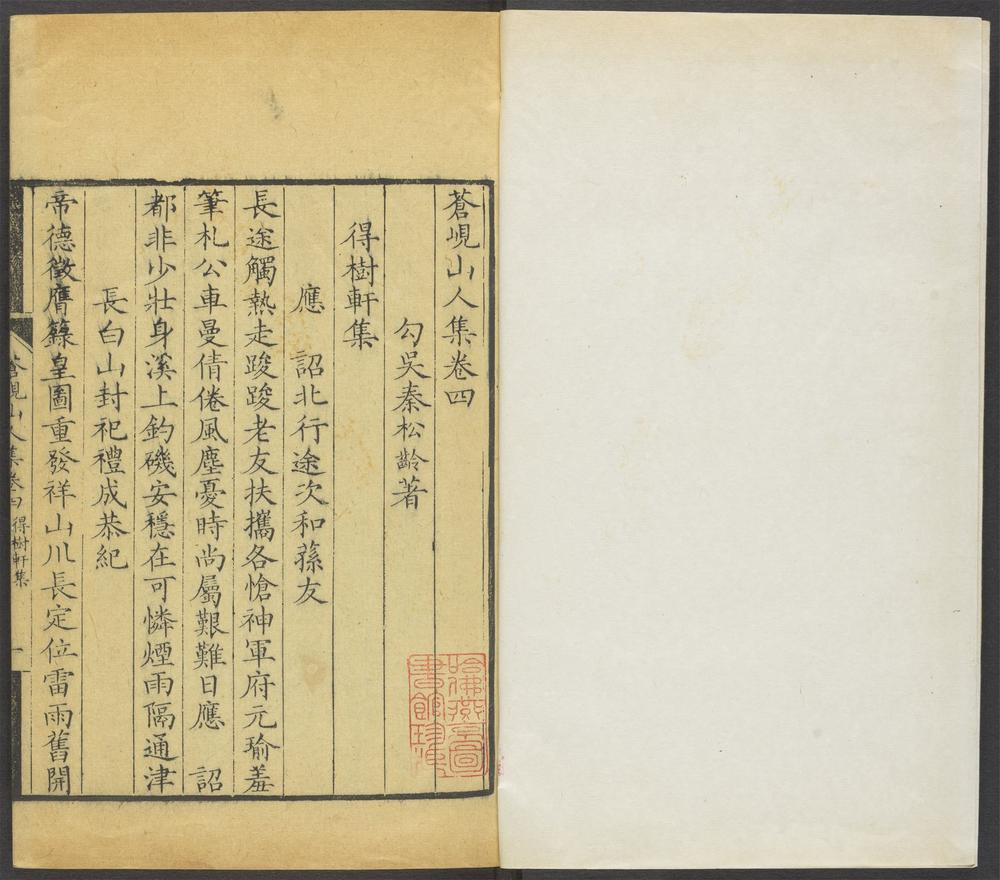 蒼峴山人集卷四
勾吳秦松齡著
得樹軒集
應　詔北行途次和蓀友
長途觸熱走踆踆老友扶攜各愴神軍府元瑜羞
筆札公車曼倩倦風塵憂時尚屬艱難日應　詔
都非少壯身溪上釣磯安穩在可憐煙雨隔通津
長白山封祀禮成恭紀
帝德徵膺籙皇圖重發祥山川長定位雷雨舊開
蒼峴山人集卷四　得樹軒集　一
哈佛燕京圖
書館珍藏